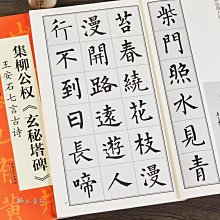 柴門照水見青
苔春繞花枝漫
漫開路遠遊人
行不到日長啼
集柳公权《玄秘塔碑》
王安石七言古诗